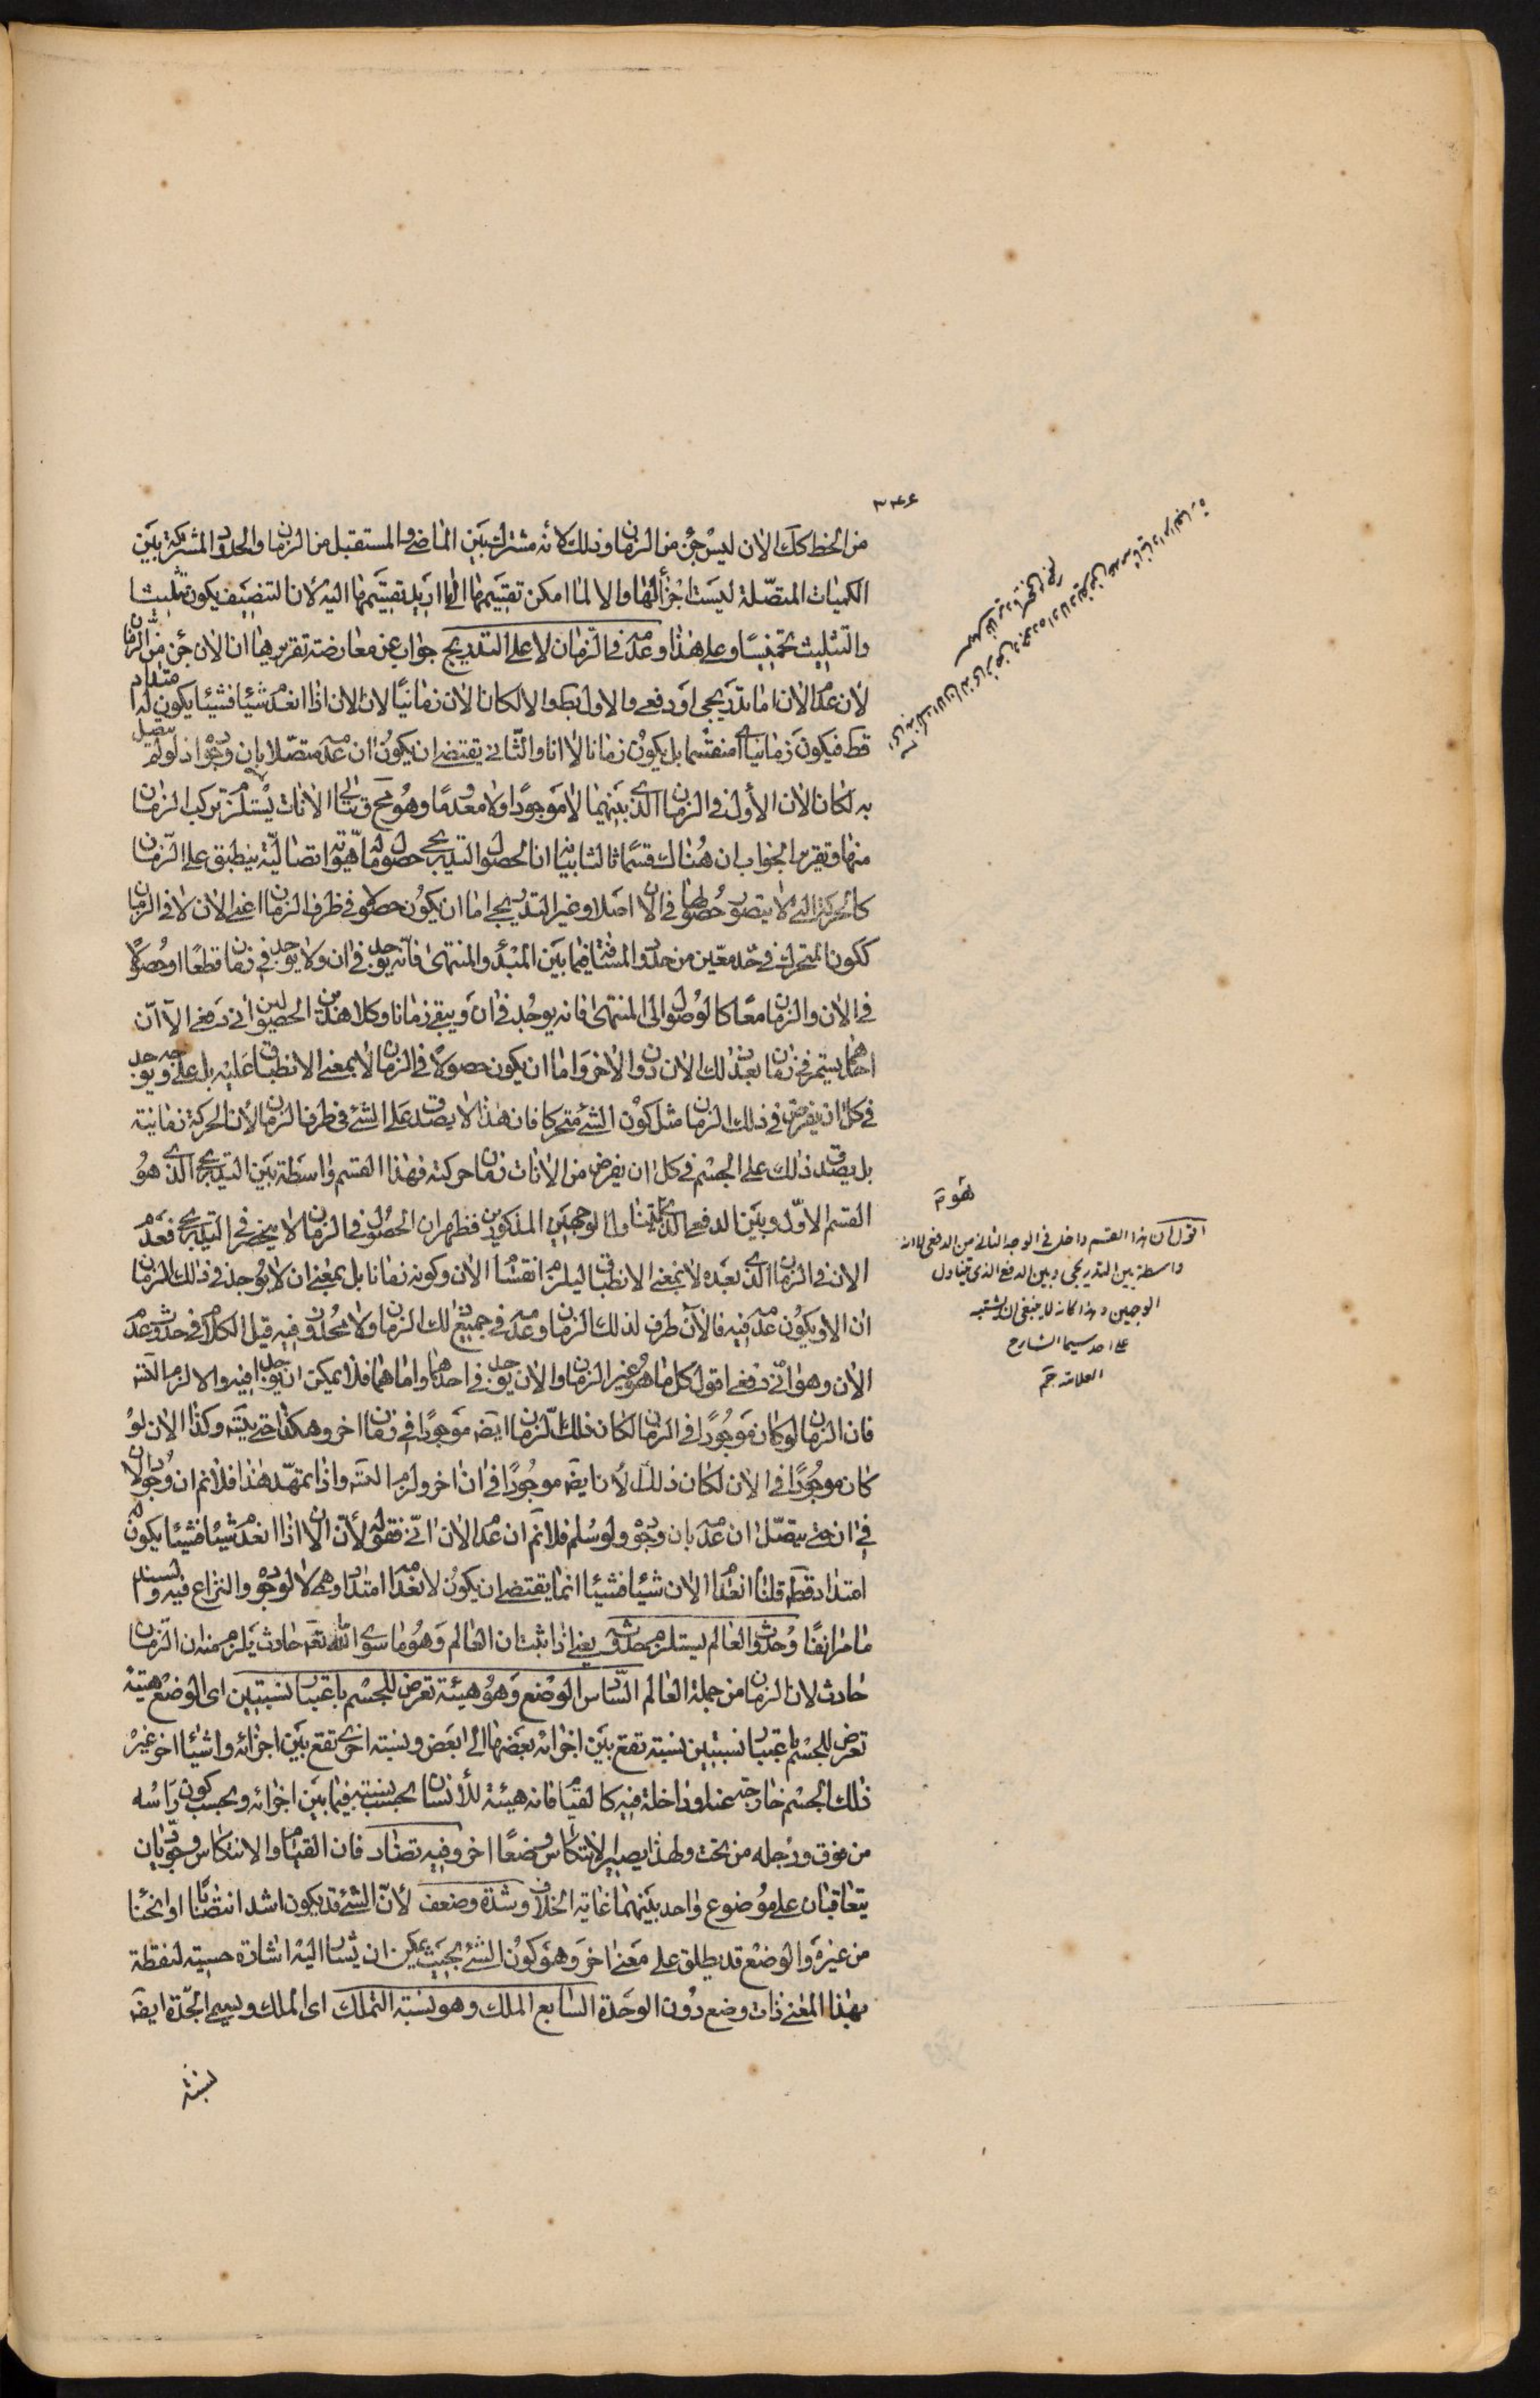 ٣٤٦
من الخط كك الان ليس جزء من الزمان وذلك لانه مشترك بين الماضى والمستقبل من الزمان والحدود المشتركة بين
الكميات المتصلة ليست اجزاء لها والا لما امكن تقسيمها الى اريد تقسيمها اليه لان التنصيف يكون تثليثا
والتثليث تخميسا وعلى هذا وعدمه فى الزمان لا على التدريج جواب عن معارضة تقريرها ان الان جزء من الزمان
لان عدم الان اما تدريجى او دفعى والاول بط والا لكان الان زمانيا لان الان اذا انعدم شيئا فشيئا يكون له امتداد
قطعا فيكون زمانيا اى منقسما بل يكون زمانا لا انا والثانى يقتضى ان يكون ان عدمه متصلا بان وجوده اذ لو لم يتصل
به لكان الان الأول فى الزمان الذى بينهما لا موجودا ولا معدوما وهو مح وتتالى الانات يستلزم تركب الزمان
منها وتقرير الجواب ان هناك قسما ثالثا بيانه ان الحصول التدريجى حصول ماله هوية اتصالية ينطبق على الزمان
كالحركة التى لا يتصور حصولها فى الان اصلا وغير التدريجى اما ان يكون حصوله فى طرف الزمان اعنى الان لا فى الزمان
ككون المتحرك فى حد معين من حدود المسافة فيما بين المبدأ والمنتهى فانه يوجد فى ان ولا يوجد فى زمان قطعا او حصولا
فى الان والزمان معا كالوصول الى المنتهى فانه يوجد فى ان ويبقى زمانا وكلا هذين الحصولين انى دفعى الا ان
احدهما يستمر فى زمان بعد ذلك الان دون الاخر واما ان يكون حصولا فى الزمان لا بمعنى الانطباق عليه بل على وجه يوجد
فى كل ان يفرض فى ذلك الزمان مثل كون الشئ متحركا فان هذا لا يصدق على الشئ فى طرف الزمان لان الحركة زمانية
بل يصدق ذلك على الجسم فى كل ان يفرض من الانات زمان حركته فهذا القسم واسطة بين التدريجى الذى هو
القسم الاول وبين الدفعى الذى يتناول الوجهين المذكورين فظهر ان الحصول فى الزمان لا ينحصر فى التدريجى فعدم
الان فى الزمان الذى بعده لا بمعنى الانطباق ليلزم انقسام الان وكونه زمانا بل بمعنى ان لا يوجد فى ذلك الزمان
ان الا ويكون عدمه فيه فالان طرف لذلك الزمان وعدمه فى جميع ذلك الزمان ولا محذور فيه قيل الكلام فى حدوث عدم
الان وهو انى دفعى اقول كل ما هو غير الزمان والان يوجد فى احدهما واما هما فلا يمكن ان يوجدا فيه والا لزم التسه
فان الزمان لو كان موجودا فى الزمان لكان ذلك الزمان ايضه موجودا فى زمان اخر وهكذا حتى يتسه وكذا الان لو
كان موجودا فى الان لكان ذلك الان ايضه موجودا فى ان اخر ولزم التسه واذا تمهد هذا فلا نم ان وجود الان
فى ان حتى يتصل ان عدمه بان وجوده ولو سلم فلا نم ان عدم الان انى فقوله لأن الان اذا انعدم شيئا فشيئا يكون له
امتداد قطعا قلنا انعدام الان شيئا فشيئا انما يقتضى ان يكون لانعدامه امتداد وهمى لا لوجوده والنزاع فيه ولسند
ما مر انفا وحدوث العالم يستلزم حدوثه يعنى اذا ثبت ان العالم وهو ما سوى الله تعه حادث يلزم منه ان الزمان
حادث لان الزمان من جملة العالم السادس الوضع وهو هيئة تعرض للجسم باعتبار نسبتين اى الوضع هيئة
تعرض للجسم باعتبار نسبتين نسبة تقع بين اجزائه بعضها الى بعض ونسبة اخرى تقع بين اجزائه واشياء اخر غير
ذلك الجسم خارجة عنه او داخلة فيه كالقيام فانه هيئة للأنسان بحسب نسبته فيما بين اجزائه وبحسب كون رأسه
من فوق ورجله من تحت ولهذا يصير الانتكاس وضعا اخر وفيه تضاد فان القيام والانتكاس وجوديان
يتعاقبان على موضوع واحد بينهما غاية الخلاف وشدة وضعف لأن الشئ قد يكون اشد انتصابا او انحناء
من غيره والوضع قد يطلق على معنى اخر وهو كون الشئ بحيث يمكن ان يشار اليه اشارة حسية لنقطة
بهذا المعنى ذات وضع دون الوحدة السابع الملك وهو نسبة التملك اى الملك ويسمى الجدة ايضه
نسبة
اقول ان هذا القسم داخل فى الوجه الثانى من الدفعى لا انه
واسطة بين التدريجى وبين الدفعى الذى يتناول
الوجهين وهذا كانه لا ينبغى ان يشتبه
على احد سيما الشارح
العلامة